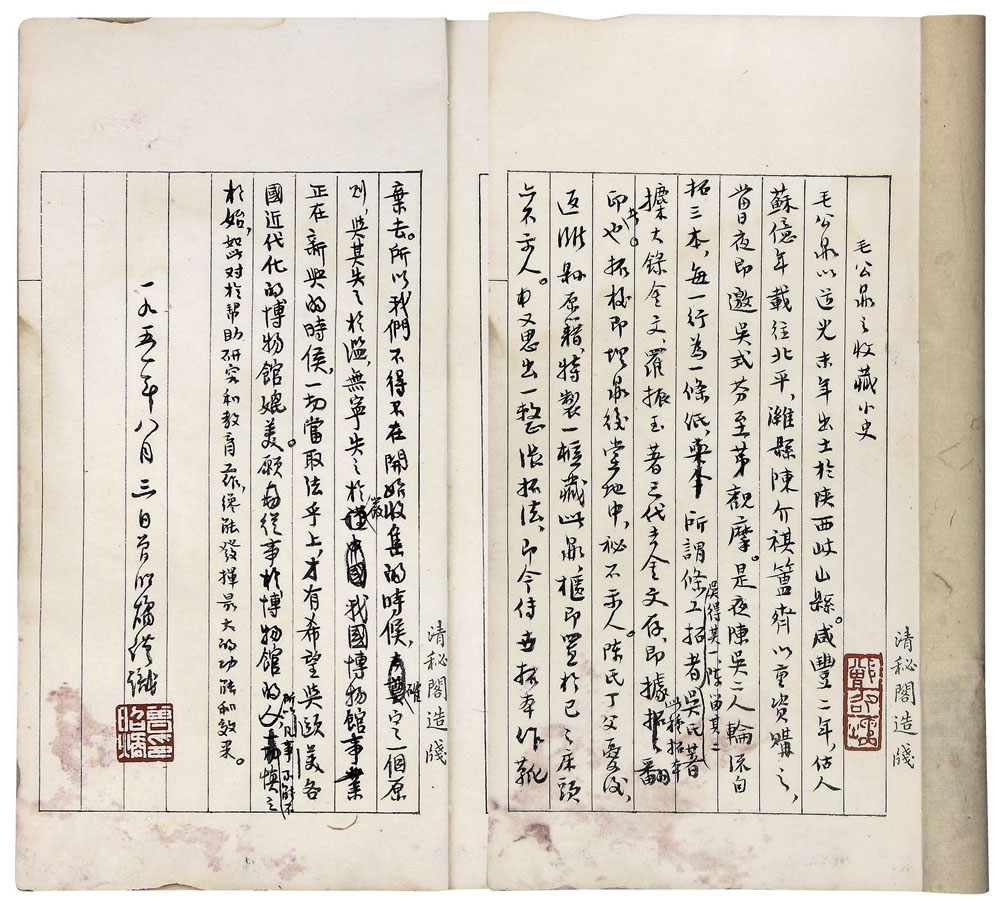 毛公鼎之收藏小史
毛公鼎以道光末年出土於陝西岐山縣。咸豐二年,估人
蘇億年載往北平,濰縣陳介祺簠齋以重資購之,
當日夜即邀吳式芬至第觀摩。是夜陳吳二人輪流自
拓三本,每一行為一條低,所謂條工拓者
吳得其一、陳留其二
吳氏著
此種拓本
攗古錄金文、羅振玉著三代吉金文存,即據拓之翻
印也
共。
拓後即埋鼎後堂地中,秘不示人。陳氏丁父憂後,
返濰縣原籍,特製一櫃藏此鼎,櫃即置於己之床頭
亦不示人。也又思出一整張拓法,即今侍吉拓本作靴
清秘閣造牋
棄去。所以我們不得不在開始收集的時候,
確
定之一個原
則,與其失之於濫,無寧失之於
嚴
我國博物館事業
正在新興的時候,一切當取法乎上,才有希望與歐美各
國近代化的博物館媲美。願從事於博物館的人
所以凡事不能不
慎之
於始,如此對於幫助研究和教育工作,纔能發揮最大的功能和效果。
一九五一年八月三日曾昭燏
清秘閣造牋
曾昭燏